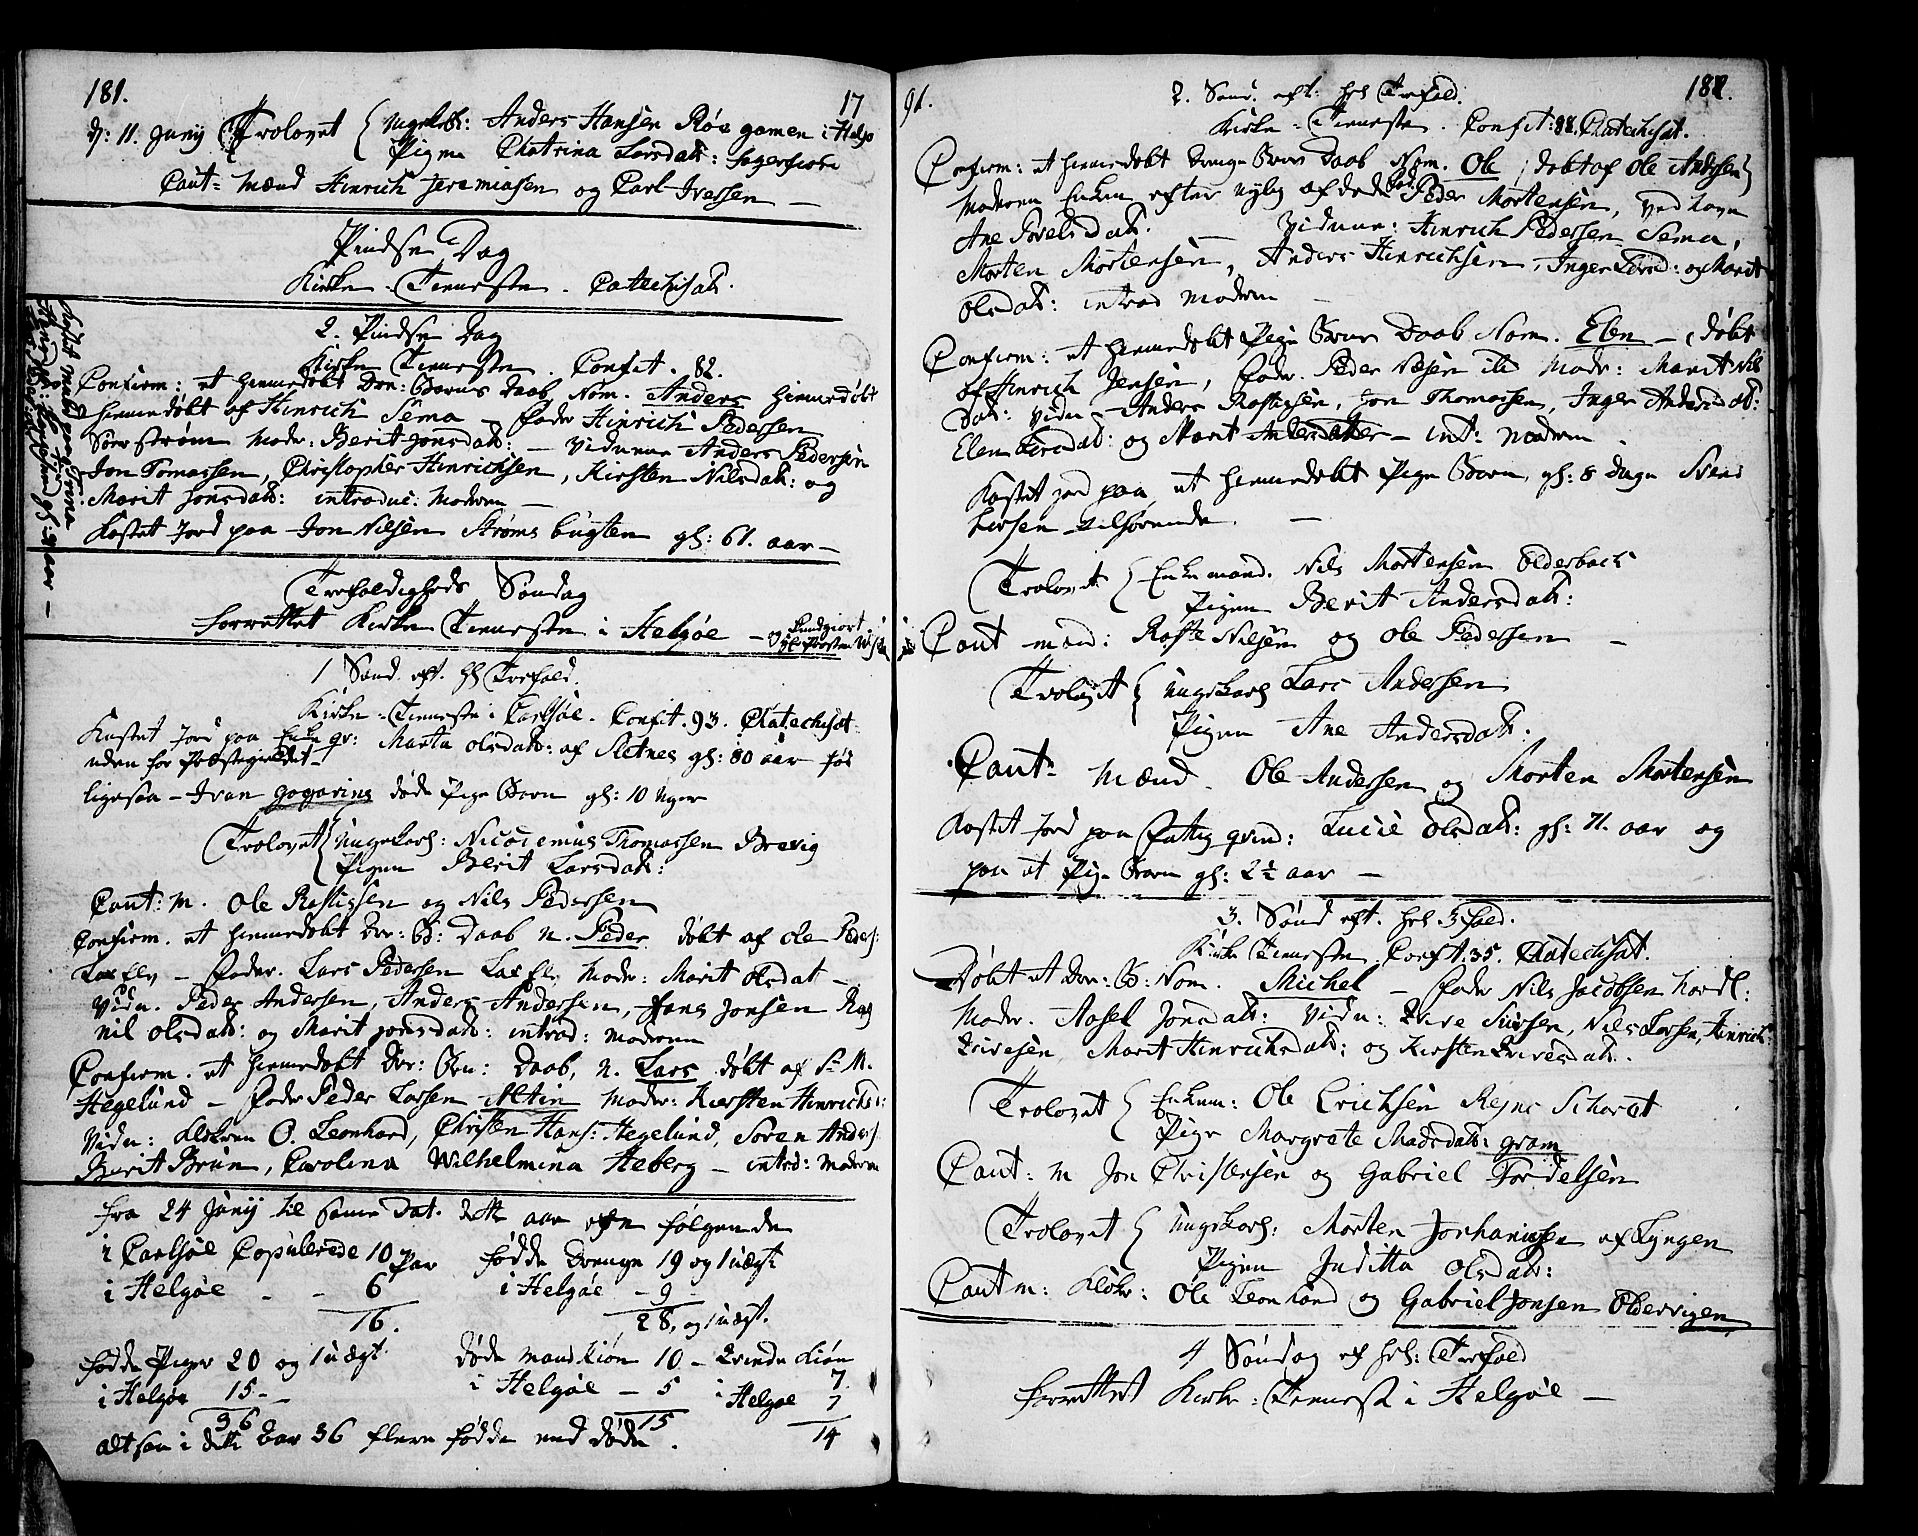 181. 17
d: 11. Junij Trolovet { Ungekarl: Anders Hansen Røe gamen i Helgø
Pigen Chatrina Larsdatt: Fagerfiord
Caut: Mænd Hinrich Jeremiasen og Carl Iversen —
Pindse Dag
Kirke-Tieneste. Catechisat.
2. Pindse Dag
Kirke Tieneste. Confit. 82.
Confirm: et hiemedøbt Dre: Barns Daab Nom. Anders hiemedøbt
hiemedøbt af Hinrich Sema — Fader Hinrich Pedersen
Sørstrøm Moder: Berit Jonsdatt: — Vidnerne Anders Pedersen
Jon Tomassen, Christopher Hinrichsen, Kirsten Nilsdatt: og
Marit Jonsdatt: introduc: Moderen —
Kastet Jord paa Jon Nilsen Strøms bugten gl: 61. aar —
Trefoldigheds Søndag
forrettet Kirke Tieneste i Helgøe —
1 Sønd. eft. hl Trefold.
Kirke-Tieneste i Carlsøe. Confit. 93. Chatechisat
Kastet Jord paa Enke qv: Marta Olsdatt: af Sletnes gl: 80 aar
uden for Præstegieldet —
ligesaa — Ivan gogarins døde Pige Barn gl: 10 Uger
Trolovet { Ungekarl: Nicodemius Thomassen Brevig
Pigen Berit Larsdatt:
Caut: M. Ole Rastissen og Nils Pedersen
Confirm. et hiemedøbt Dre: B: Daab N. Peder døbt af Ole Peders:
Lax Elv — Fader. Lars Pedersen Lax Elv, Moder: Marit Olsdat —
Vidn. Peder Andersen, Anders Andersen, Hans Jonsen Rag
nil Olsdatt: og Marit Jonsdatt: introd: Moderen
Confirm. et hiemedøbt Dre: Brn: Daab, N. Lars døbt af S. M.
Hegelund — Fader Peder Larsen Altin Moder: Kirsten Hinrichsd:
Vidn: Klokren O. Leonhard, Christen Hans: Hegelund, Søren Anders:
Berit Brun, Carolina Wilhelmina Heberg — introd: Moderen
fra 24 Junij til samme Dat. dette aar ere følgende
i Carlsøe Copulerede 10 Par fødde Drenge 19 og 1 uægt
i Helgøe - - 6 i Helgøe - 9
16. 28, og 1 uægt.
fødde Piger 20 og 1 uægt. døde Mandkiøn 10 — Qvinde Kiøn 7
i Helgøe 15 - i Helgøe - 5 i Helgøe 7
36 15 14
altsaa i dette aar 36 flere fødde end døde.
91. 2. Sønd. eft: hel Trefold. 182.
Kirke-Tieneste. Confit: 88. Chatechisat.
Confirm: et hiemedøbt Drenge Barns Daab Nom. Ole (døbt af Ole Andersen)
Moderen Enken efter nylig afdøde Peder Mortensen, ved Navn
Ane Povelsdatt. — Vidnerne: Hinrich Pedersen Sema,
Morten Mortensen, Anders Hinrichsen, Inger Iversd: og Marit
Olsdatt: introd Moderen —
Confirm: et hiemedøbt Pige Barns Daab Nom. Elen — (døbt
af Hinrich Jensen, Fader. Peder Moder: Marit Nils
Datt: Vidn — Anders Rastissen, Jon Thomassen, Inger Andersdatt:
Elen Iversdatt: og Marit Andersdatter — int: Moderen.
Kastet Jord paa et hiemedøbt Pige Barn, gl: 8 dage
Iversen tilhørende. —
Trolovet { Enkemand. Nils Mortensen Olderbach
Pigen Berit Andersdatt:
Caut mænd: Raste Nilsen og Ole Pedersen —
Trolovet { Ungekarl Lars Andersen
Pigen Ane Andersdatt.
Caut: Mænd. Ole Andersen og Morten Mortensen
Kastet Jord paa Fattig qvind: Lucie Olsdatt: gl: 71. aar og
paa et Pige Barn gl: 2 ½ aar —
3. Sønd eft. hel 3fold.
Kirke Tieneste. Confit. 35. Chatechisat.
Døbt et Dre: B: Nom. Michel — Fader Nils Jacobsen
Moder. Aasel Jonsdatt: Vidn: Qvive Siursen, Nils Larsen, Hinrich
Qvivesen, Marit Hinrichsdatt: og Kirsten Qvivesdatt:
Trolovet { Enkem: Ole Erichsen
Pige Margrete Madsdatt: gram
Caut: M Jon Christensen og Gabriel Tordelsen
Trolovet { Ungekarl: Morten Johannissen af Lyngen
Pigen Juditta Olsdatt:
Caut M: Klokr: Ole Leonhard og Gabriel Jonsen Oldervigen
4 Søndag ef hel: Trefold
forrettet Kirke-Tieneste i Helgøe —